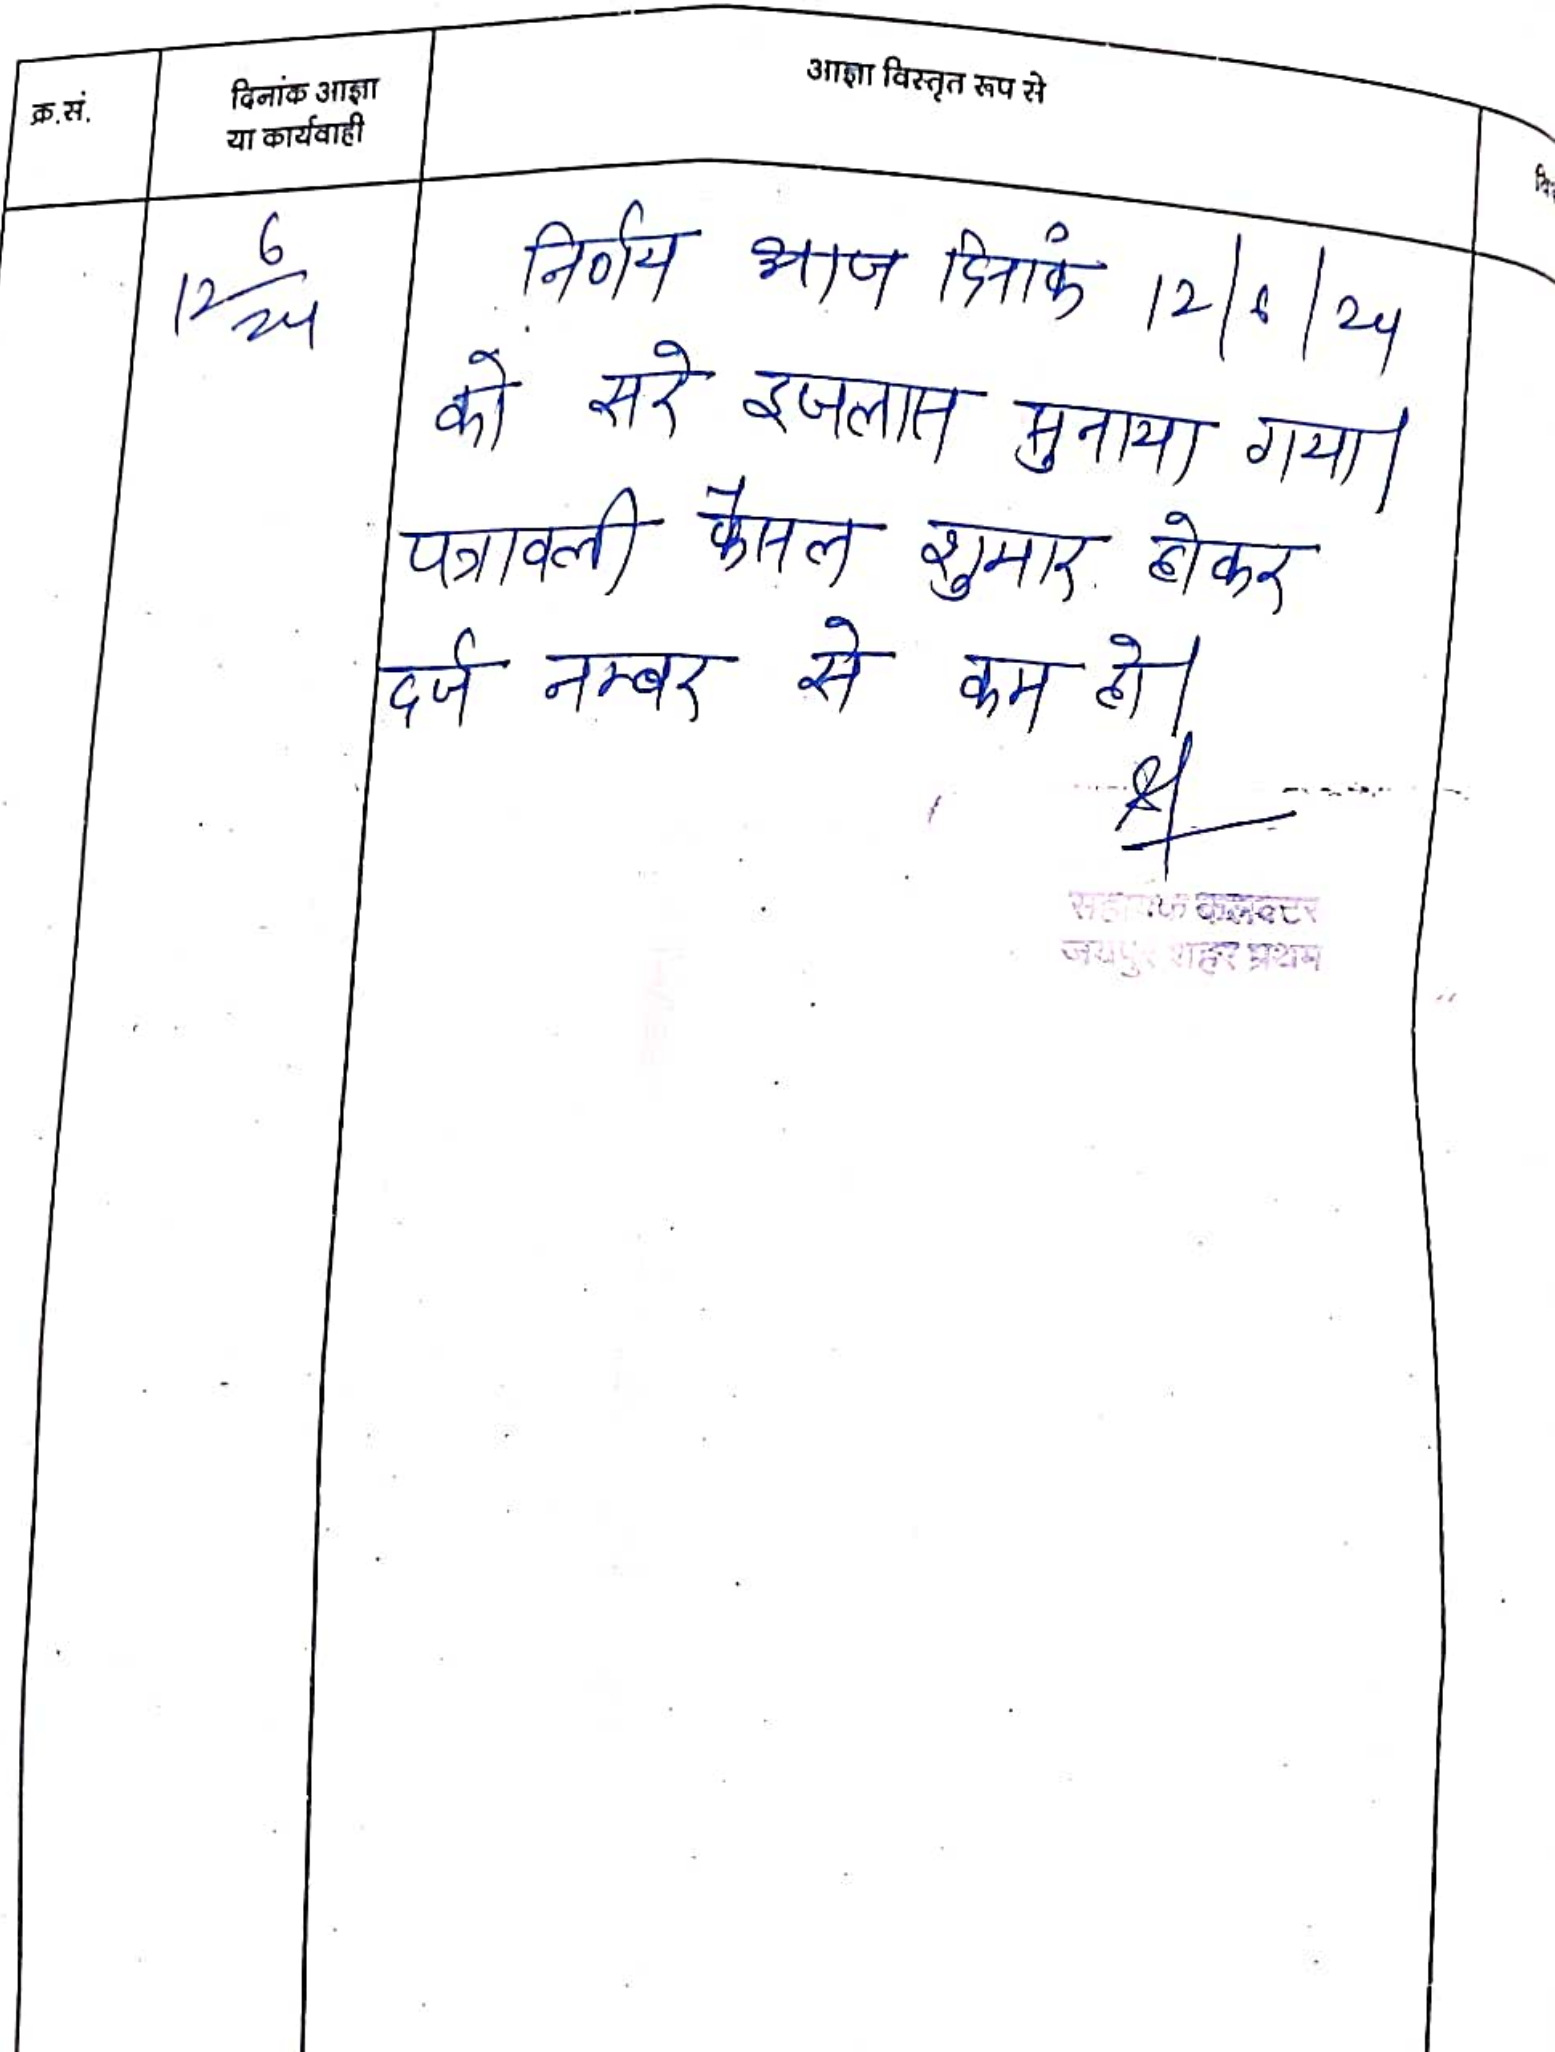 क्र.सं.
दिनांक आज्ञा
या कार्यवाही
आज्ञा विस्तृत रूप से
12/6/24
निर्णय आज दिनांक 12/6/24
को सरे इजलास सुनाया गया।
पत्रावली फैसल शुमार होकर
दर्ज नम्बर से कम हो।
सहायक कलक्टर
जयपुर शहर प्रथम